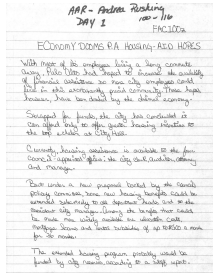 AAR - Andrea Pushing
DAY 1
100-116
EAC100z
ECONOMY DOOMS P.A. HOUSING-AID HOPES
With most of its employees living a long commute
away, Palo Alto had hoped to increase the availability
of financial assistance so new city employees could
live in this notoriously priced community. Those hopes,
however, have been dashed by the dismal economy.
Strapped for funds, the city has concluded it
can afford only to offer such housing incentives to
the top echelon at City Hall.
Currently housing assistance is available to the four
council-appointed officers: the city clerk, auditor, attorney
and manager.
But under a new proposal backed by the council
policy committee, some new housing benefits would be
extended selectively to all department heads and to the
assistant city manager. Among the benefits that could
be made more widely available are adjustable rate
mortgage loans and rental subsidies of up to $1,250 a month
for 36 months.
The extended housing program probably would be